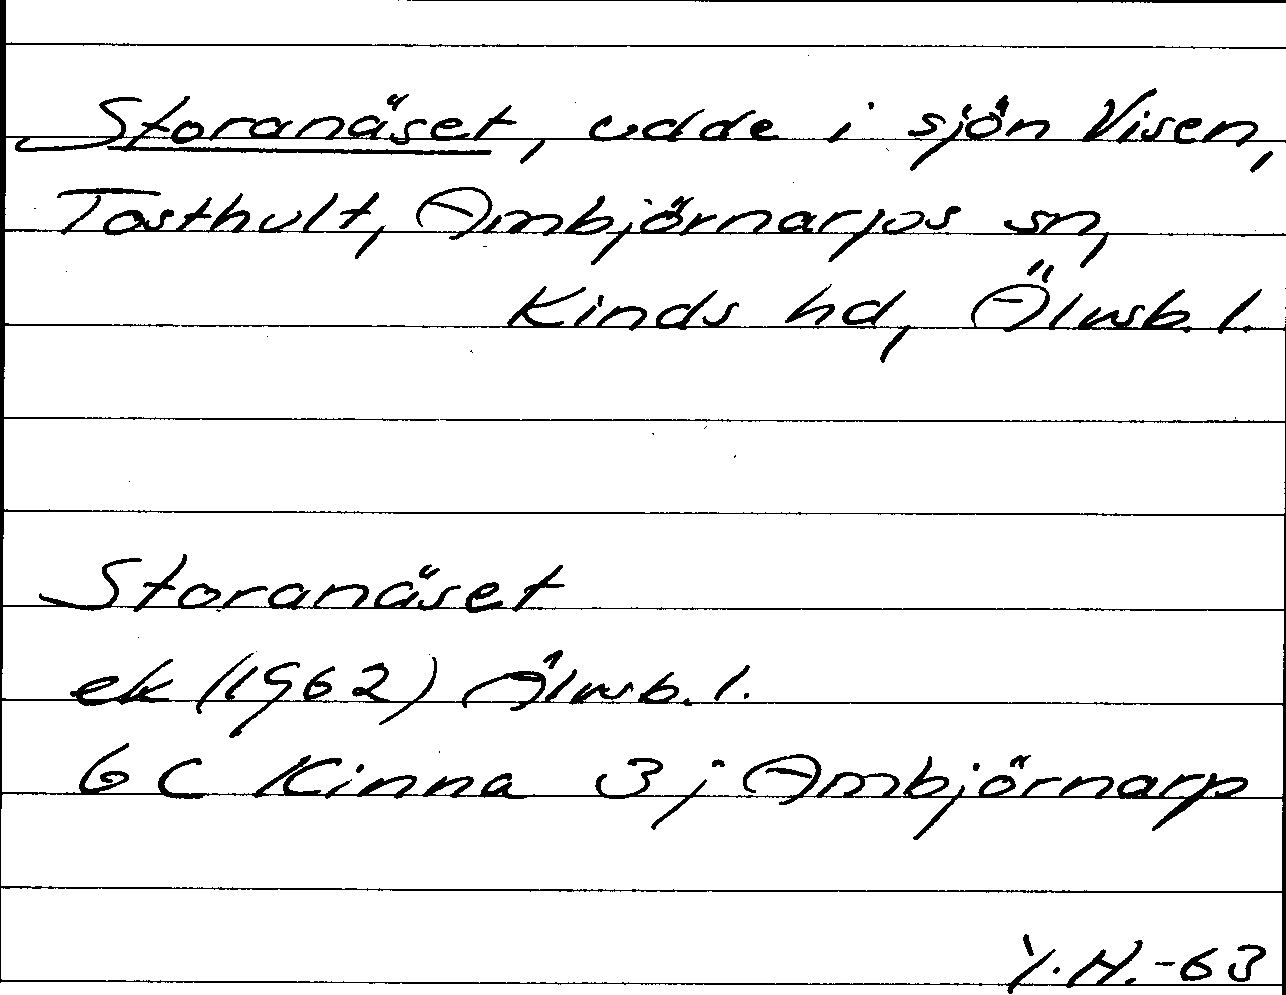 Storanäset, udde i sjön Visen,
Tosthult, Ambjörnarps sn,
Kinds hd, Älvsb. l.
Storanäset
ek (1962) Älvsb. l.
6 C Kinna 3 j Ambjörnarp
Y.H.-63